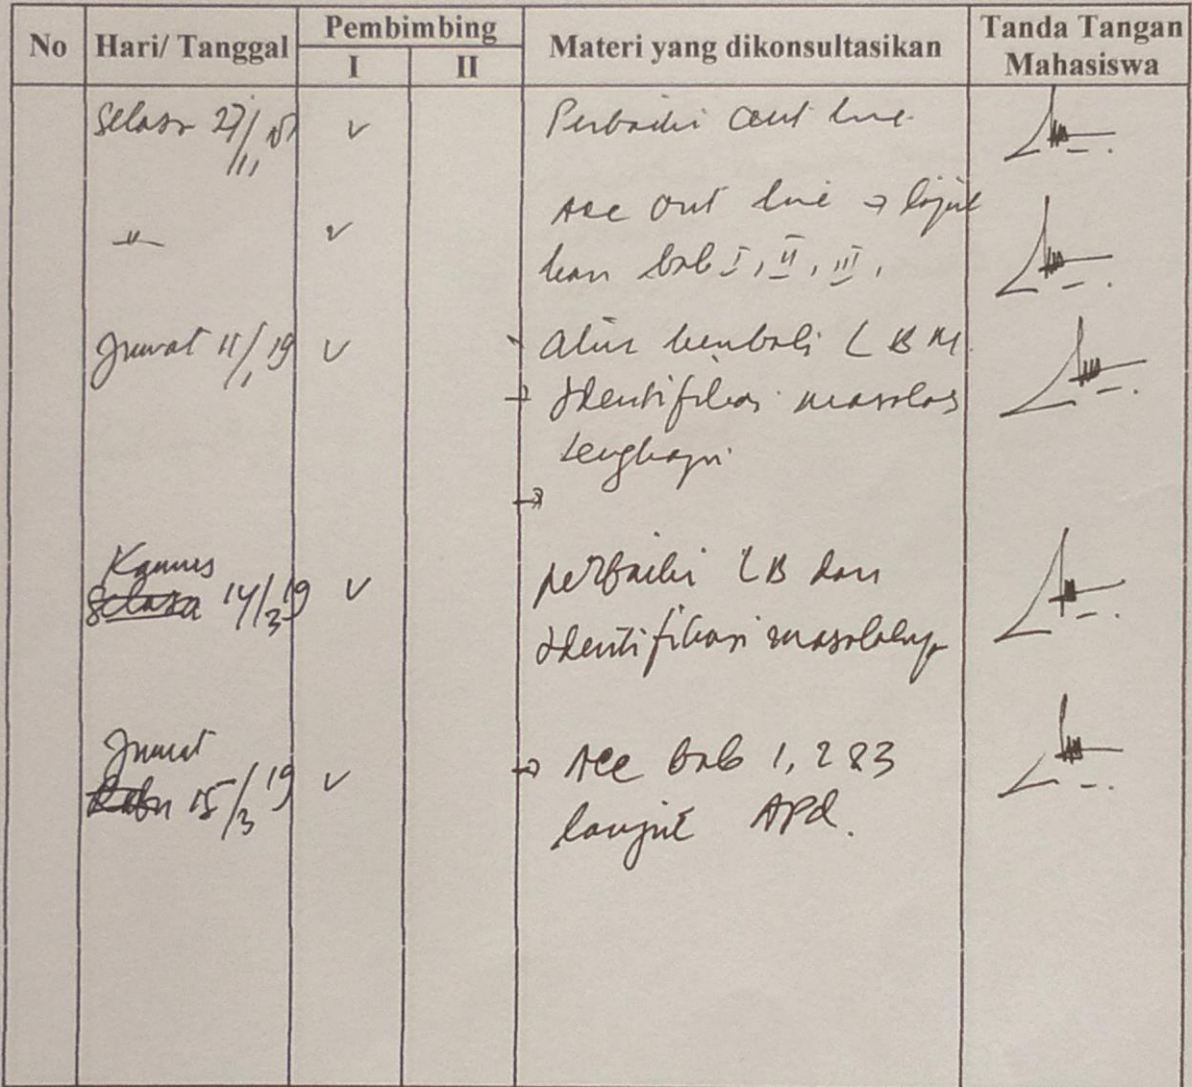 No Hari/ Tanggal Pembimbing Materi yang dikonsultasikan Tanda Tangan Mahasiswa
I II
Selasa 27/11 v Perbaiki out line
-〃- v Acc out line → lanjut
kan bab I, II, III,
Jumat 11/1 19 v - Atur kembali LBM
→ Identifikasi masalah
lengkapi
→
Kamis
Selasa 14/3 19 v perbaiki LB dan
Identifikasi masalahnya
Jumat
Rabu 15/3 19 v → Acc bab 1, 2 & 3
lanjut APD.